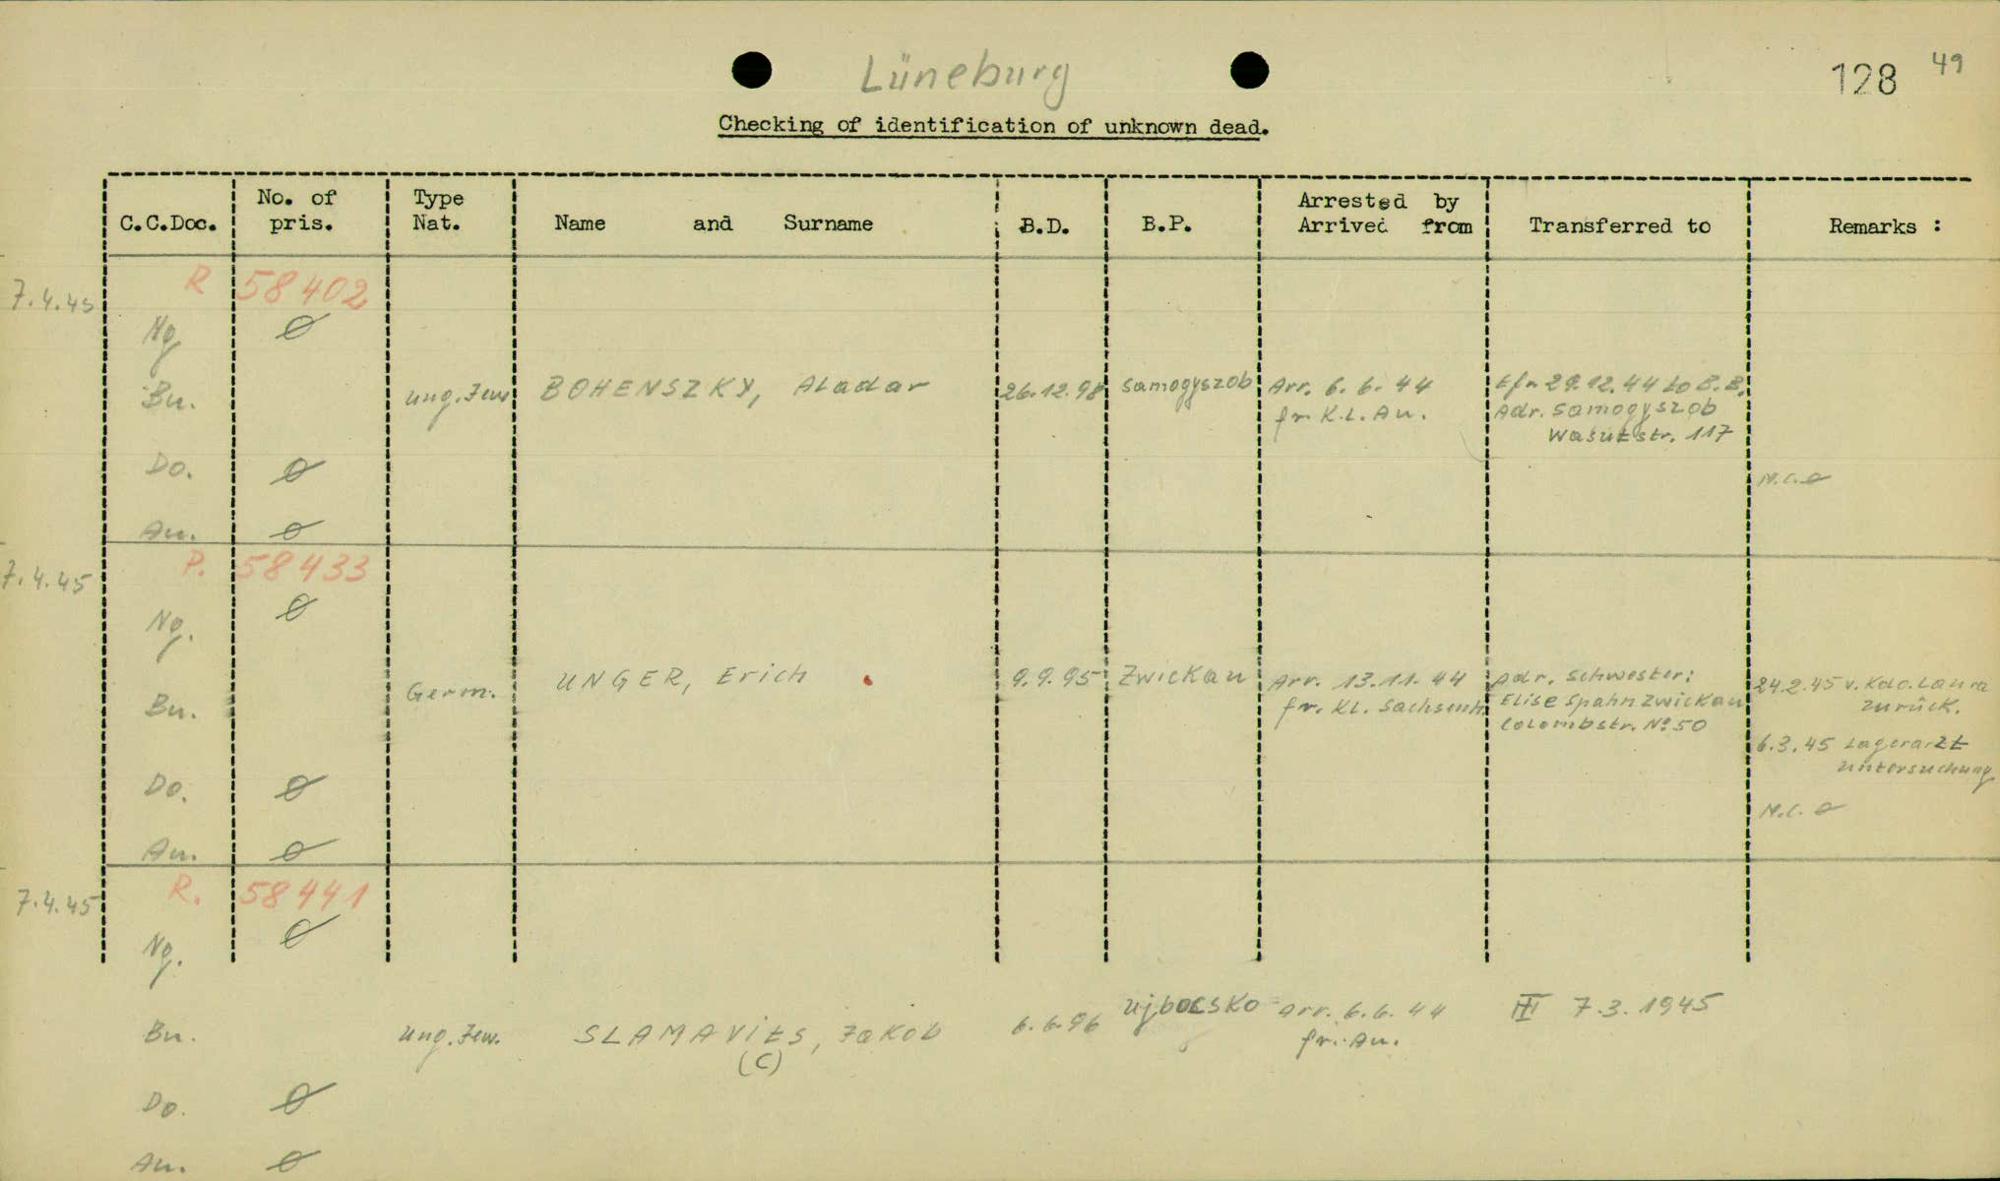 Lüneburg
128 49
Checking of identification of unknown dead.
C.C.Doc. No. of pris. Type Nat. Name and Surname B.D. B.P. Arrested by Arrived from Transferred to Remarks :
7.4.45 R 58402
Ng ø
Bu. ung. Jew BOHENSZKY, Aladar 26.12.98 Samogyszob Arr. 6.6.44 tfr 29.12.44 to B.B.
fr. K.L. Au. Adr. Samogyszob
Wasutstr. 117
Do. ø N.C. ø
Au. ø
7.4.45 P. 58433
Ng. ø
Bu. Germ. UNGER, Erich 9.9.95 Zwickau Arr. 13.11.44 Adr. Schwester: 24.2.45 v. Kdo. Laura
fr. KL. Sachsenh. Elise Spahn Zwickau zurück.
Colombstr. No 50
6.3.45 Lagerarzt
untersuchung
Do. ø N.C. ø
Au. ø
7.4.45 R. 58441
Ng. ø
Bu. ung. Jew. SLAMAVITS, Jakob 6.6.96 Ujbocsko Arr. 6.6.44 III 7.3.1945
(C) fr. Au.
Do. ø
Au. ø